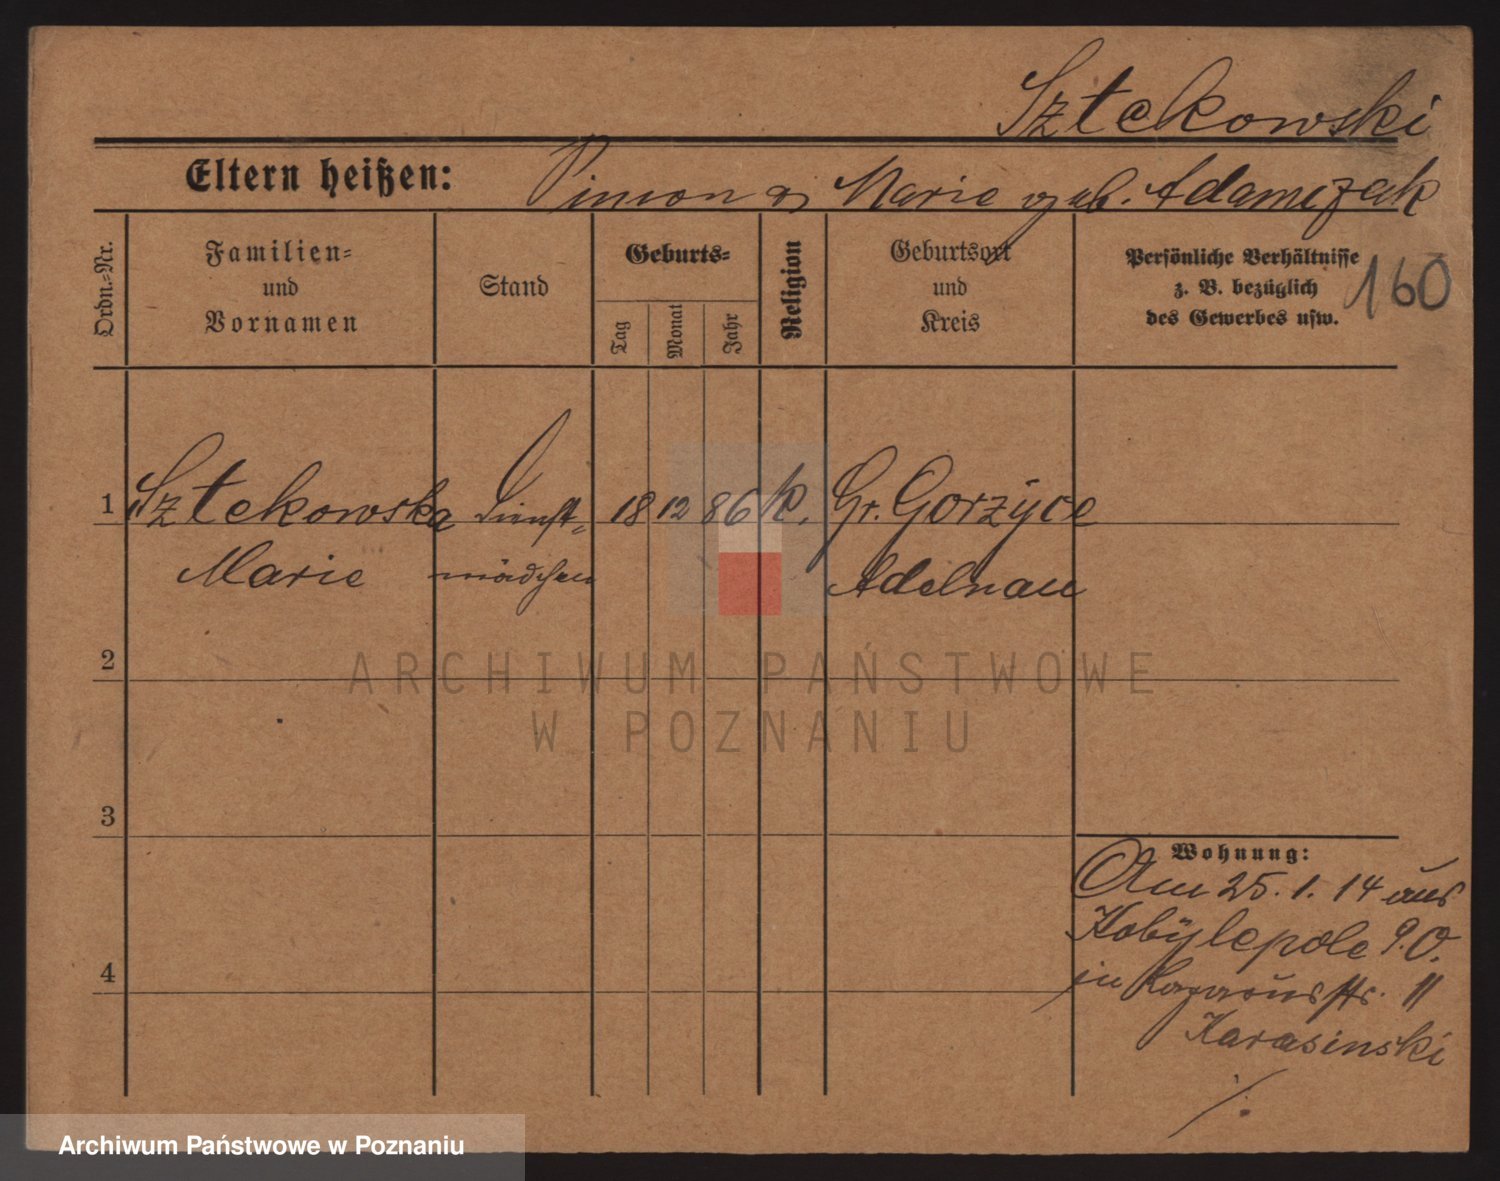 Sztekowski
Eltern heißen: Simon u Marie geb. Adamczak
Ordn.-Nr.
Familien-
und
Vornamen
Stand
Geburts-
Tag
Monat
Jahr
Religion
Geburtsort
und
Kreis
Persönliche Verhältnisse
z. B. bezüglich
des Gewerbes usw.
160
1 Sztekowska Dienst- 18 12 86 k. Gr. Gorzyce
Marie mädchen Adelnau
2
ARCHIWUM PAŃSTWOWE
W POZNANIU
3
Wohnung:
Am 25. 1. 14 aus
Kobylepole P.O.
4
in Lazarusstr. 11
Karasinski
Archiwum Państwowe w Poznaniu